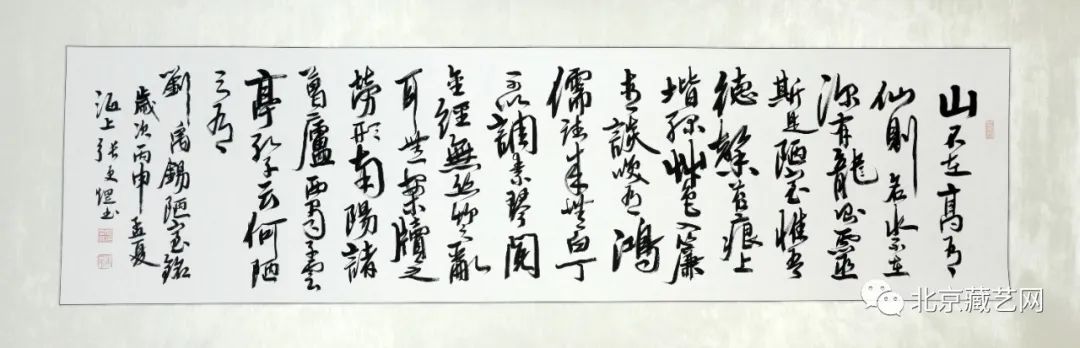 山不在高有
仙則名水不在
深有龍則靈
斯是陋室惟吾
德馨苔痕上
堦綠艸色入簾
青談笑有鴻
儒往来無白丁
可以調素琴閱
金經無絲竹之亂
耳無案牘之
勞形南陽諸
葛廬西蜀子雲
亭孔子云何陋
之有
劉禹錫陋室銘
歲次丙申孟夏
海上張书
北京藏艺网